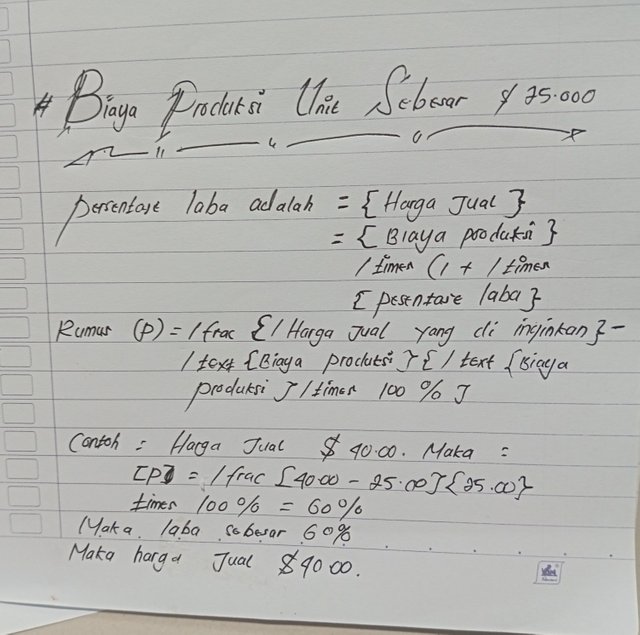 # Biaya Produksi Unit Sebesar $ 25.000
Persentase laba adalah = { Harga Jual }
= { Biaya produksi }
/ times (1 + / times
{ pesentase laba }
Rumus (P) = / frac { / Harga Jual yang di inginkan } -
/ text { Biaya produksi } { / text { Biaya
produksi } / times 100 % }
Contoh = Harga Jual $ 40.00. Maka =
[P] = / frac { 40.00 - 25.00 } { 25.00 }
times 100 % = 60 %
Maka laba sebesar 60%
Maka harga Jual $ 40.00.